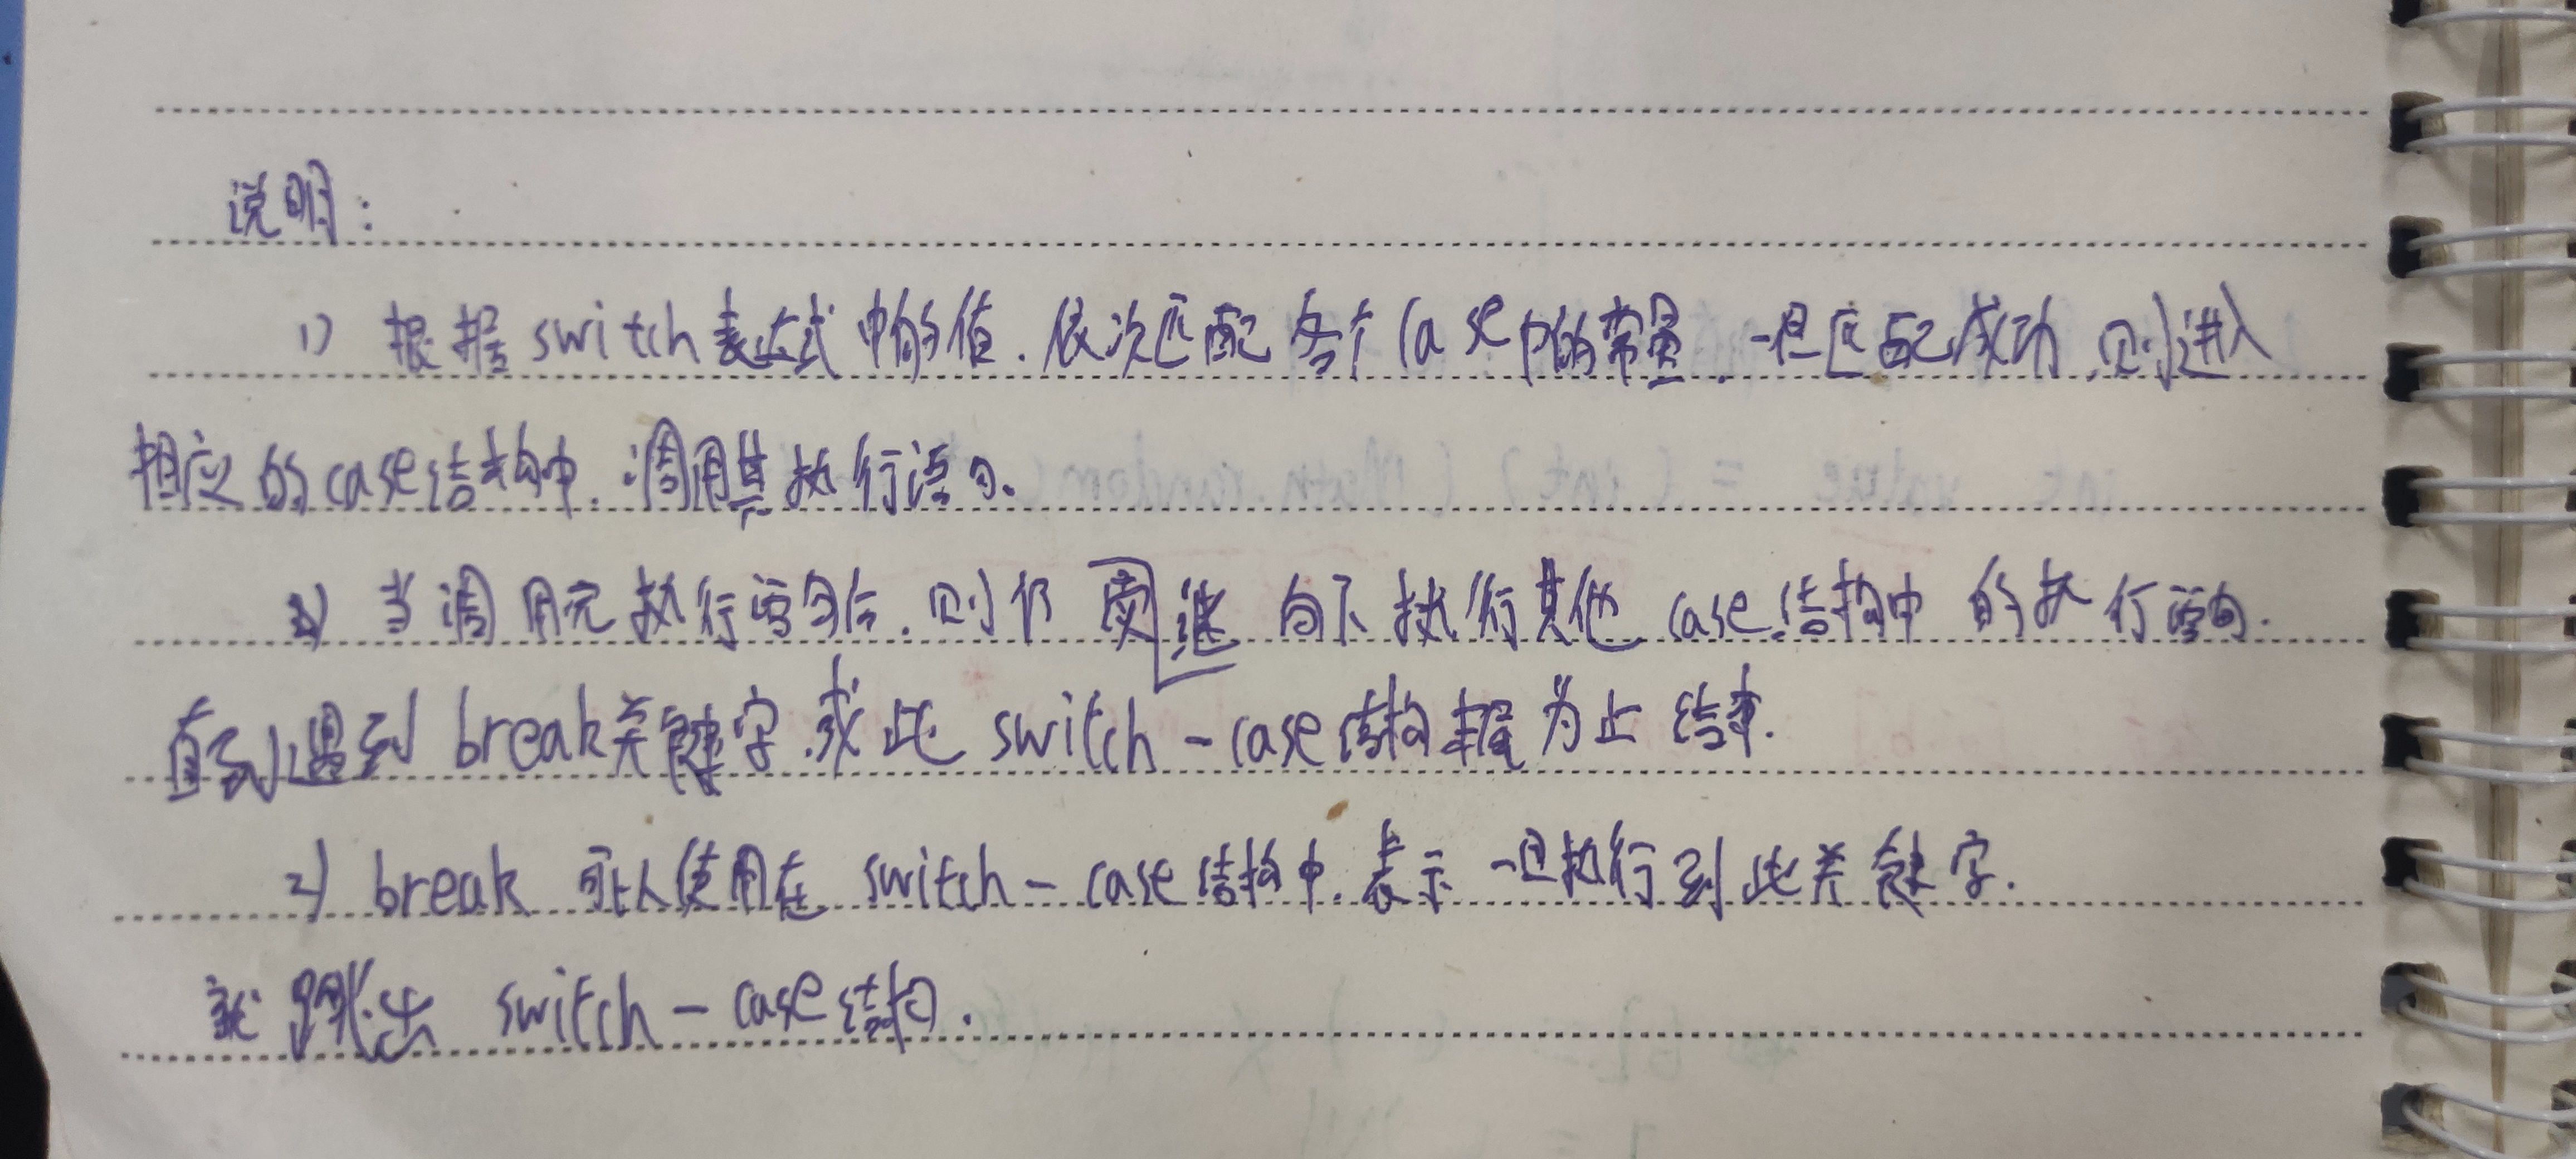 说明：
1) 根据switch表达式中的值，依次匹配各个case中的常量，一旦匹配成功，则进入
相应的case结构中，调用其执行语句。
当调用完执行语句后，则仍要继向下执行其他case结构中的执行语句，
直到遇到break关键字，或此switch-case结构 为止结束.
2) break 可以使用在 switch-case结构中，表示一旦执行到此关键字，
就跳出 switch-case结构.